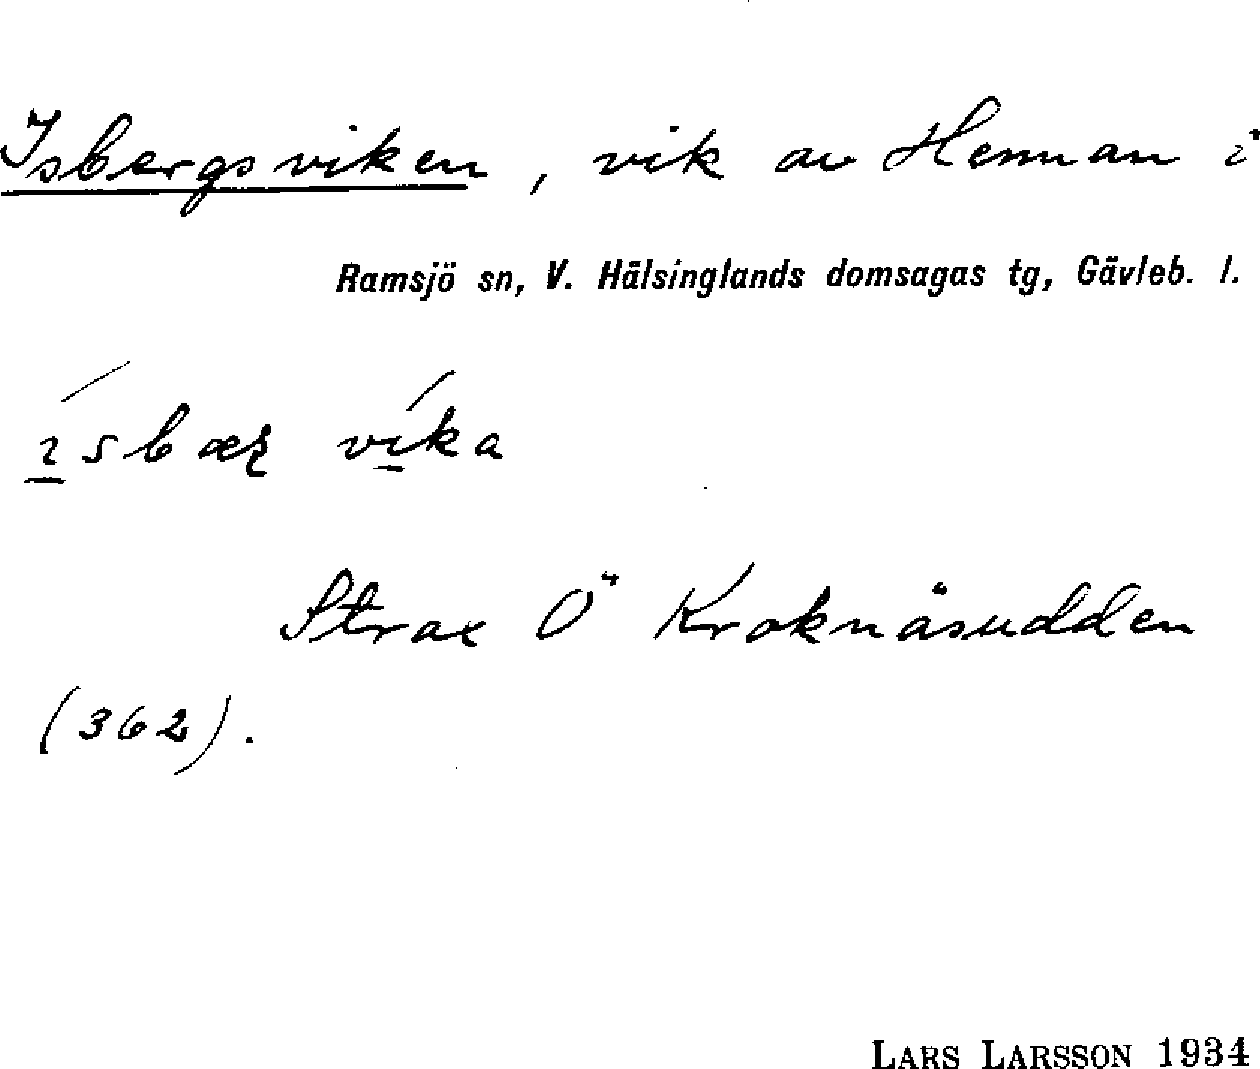 Isbergsviken, vik av Hennan i
Ramsjö sn, V. Hälsinglands domsagas tg, Gävleb. l.
víka
Strax Ö Kroknäsudden
(362).
LARS LARSSON 1934